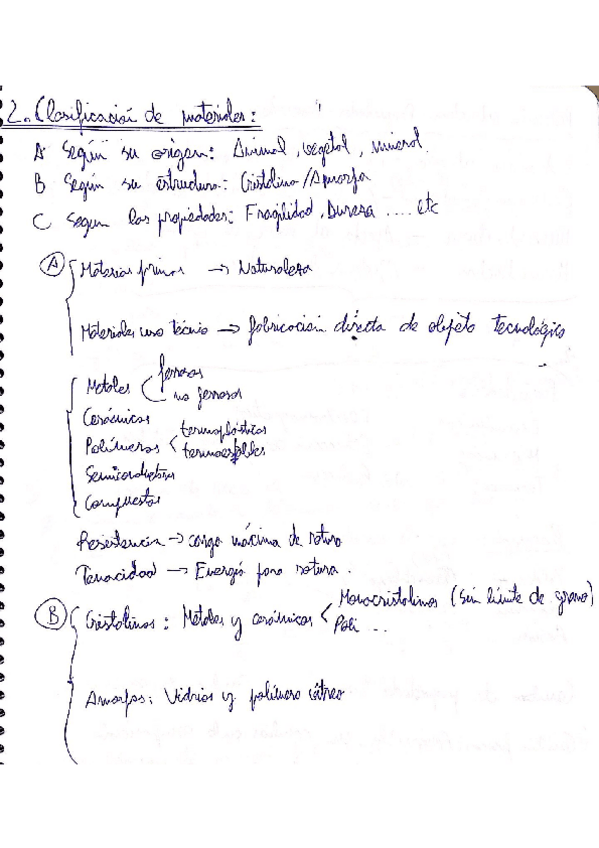 2. Clasificación de materiales:
A Según su origen: Animal, vegetal, mineral.
B Según su estructura: Cristalina/Amorfa
C Segun las propiedades: Fragilidad, Dureza .... etc
A Materias primas → Naturaleza
Materiales uso técnico → fabricación directa de objeto tecnológico
Metales ferrosos
no ferrosos
Cerámicos
Polímeros termoplásticos
termoestables
Semiconductores
Compuestos
Resistencia → carga máxima de rotura
Tenacidad → Energía para rotura.
B Cristalinos: Metales y cerámicos Monocristalinos (Sin límite de grano)
Poli ...
Amorfos: Vidrios y polímero vítreo